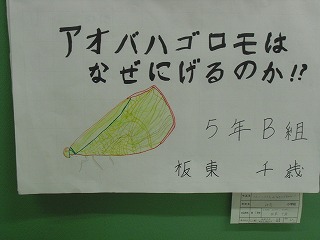 アオバハゴロモは
なぜにげるのか!?
5年B組
板東 千歳